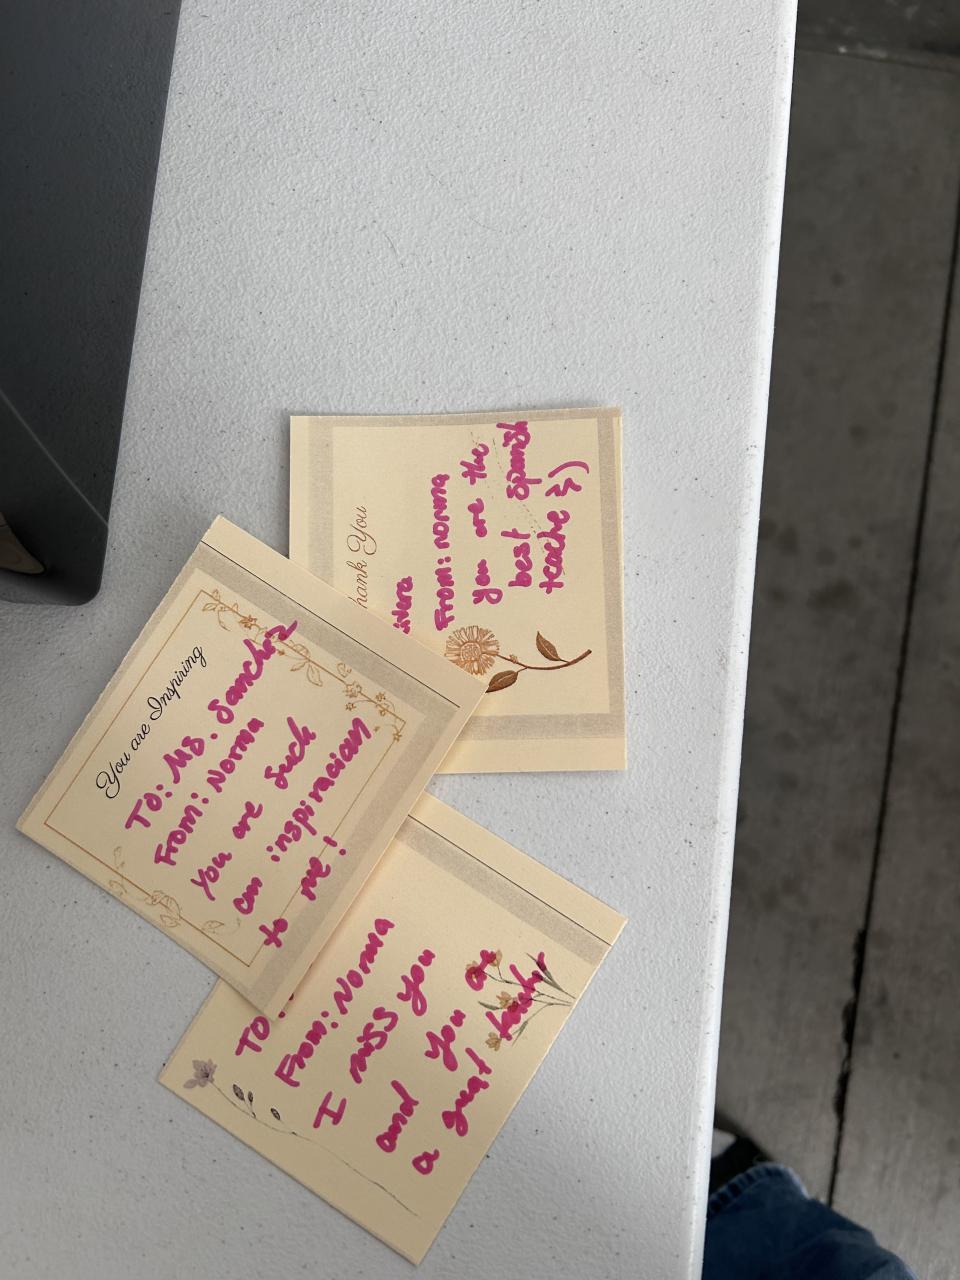 You are Inspiring
To: Ms. Sanchez
From: Norma
You are such
an inspiracion
to me!
Thank You
From: norma
you are the
best spanish
teache
To:
From: Norma
I miss you
and you are
a great teacher